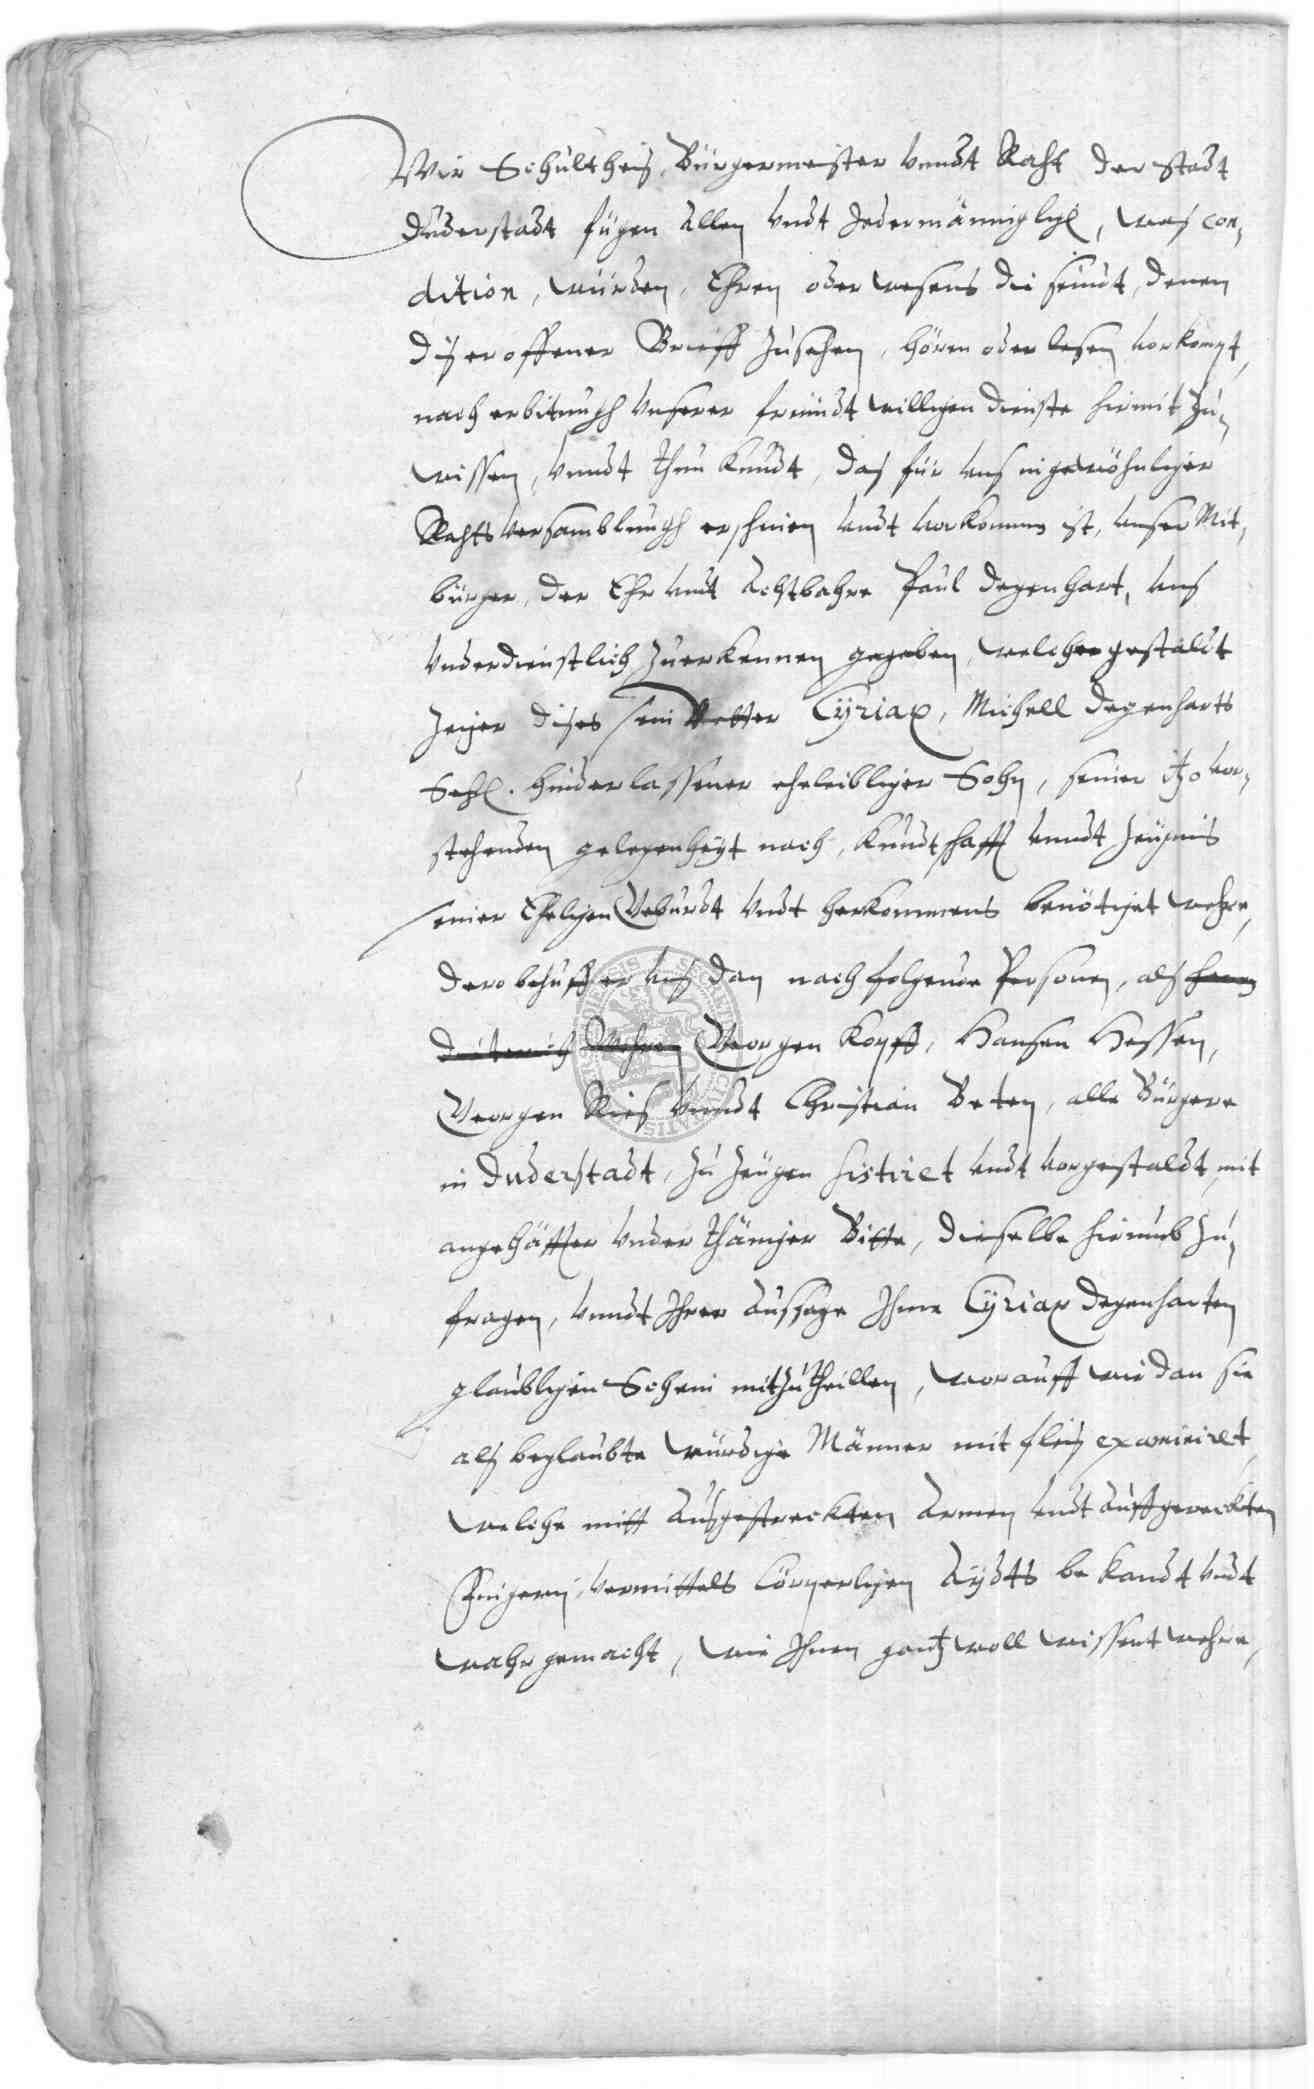 Wir Schultheis, Bürgermeister vnndt Raht der Stadt
Duderstadt fügen Allen vndt Jedermänniglich, was con„
dition, würden, Ehren oder wesens die seindt, denen
diser offener Brieff zusehen, hören oder lesen vorkompt,
nach erbitungh vnserer freundtwilligen dienste hirmit zu„
wissen, vnndt thun kundt, das für vns in gewöhnlicher
Rahts versamblungh erschinen vndt vorkommen ist, vnser Mit„
bürger, der Ehr vnd Achtbahre Paul Degenhart, vns
vnderdienstlich zuerkennen gegeben, welcher gestaldt
Zeiger dises sein Vetter Cÿriax, Michell Degenharts
Sehl. hinderlassener eheleiblicher Sohn, seiner itzo vor„
stehenden gelegenheyt nach, kundtschafft vnndt Zeugnis
seiner Ehelichen Geburdt vndt herkommens benötiget wehre,
dero behuff er vns dan nachfolgende Personen, als
Georgen Kopff, Hansen Hessen,
Georgen Ries vnndt Christian Beten, alle Bürgere
in Duderstadt, zu Zeugen sistiret vndt vorgestaldt, mit
angehäffter vnderthäniger Bitte, dieselbe hirumb zu„
fragen, vnndt Ihrer Aussage Ihme Cÿriax Degenharten
glaublichen Schein mitzutheillen, worauff wir dan sie
als beglaubte würdige Männer mit fleis examiniret,
welche mitt Ausgestreckten Armen vndt Auffgereckten
Fingern, vermittels Cörperlichen Aÿdts bekandt vndt
wahr gemacht, wie Ihnen gantz woll wissent wehre,